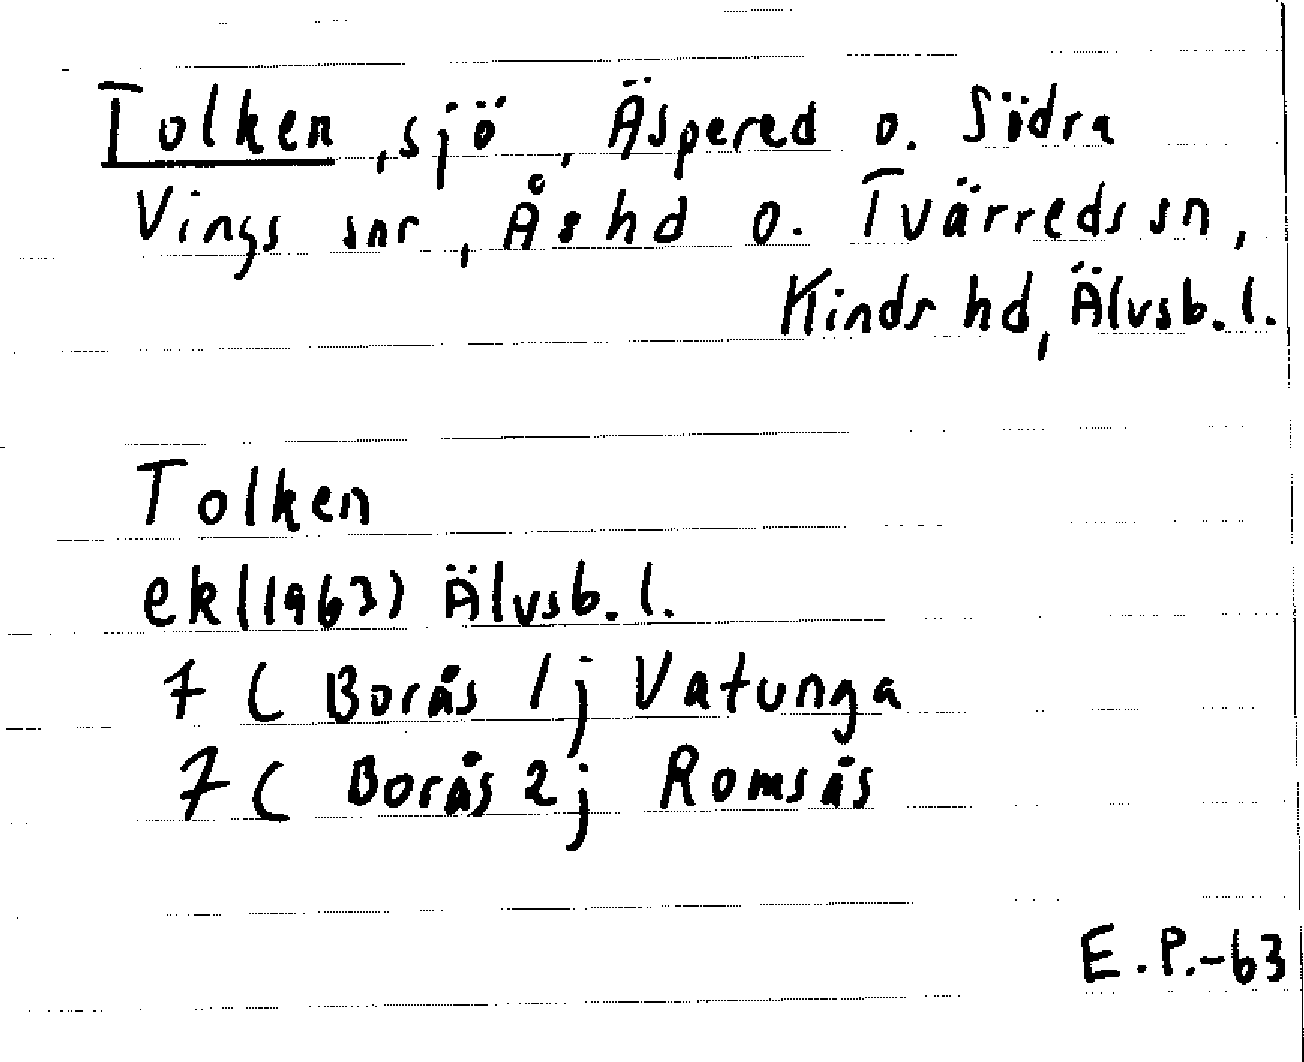 Tolken, sjö, Äspered o. Södra
Vings snr, Ås hd o. Tvärreds sn,
Kinds hd, Älvsb. l.
Tolken
ek (1963) Älvsb. l.
7 C Borås 1 j Vatunga
7 C Borås 2 j Romsås
E.P.-63